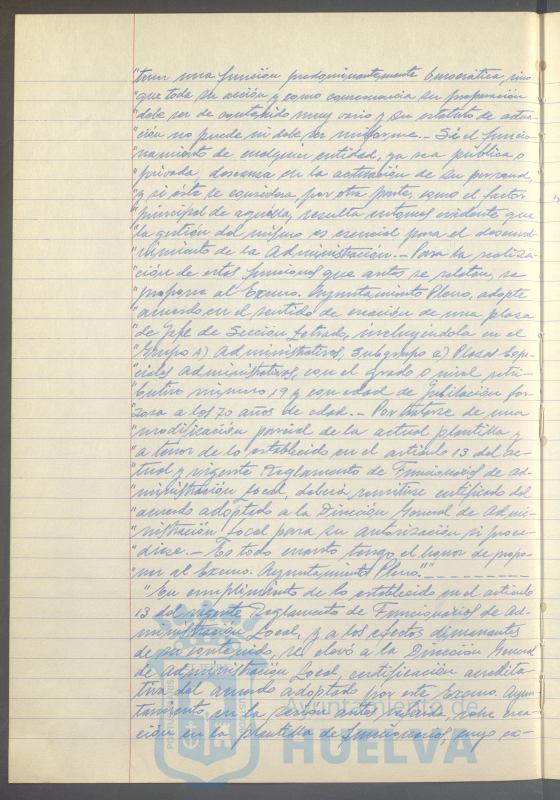 "tener una función predominantemente burocrática, sino
"que toda su acción y como consecuencia su preparación
"debe ser de contenido muy vario y su estatuto de actua-
"ción no puede ni debe ser uniforme.- Si el funcio-
"namiento de cualquier entidad, ya sea pública o
"privada, descansa en la actuación de su personal,
"y si éste se considera, por otra parte, como el factor
"principal de aquélla, resulta entonces evidente que
"la gestión del mismo es esencial para el desenvol-
"vimiento de la Administración.- Para la realiza-
"ción de estas funciones que antes se relatan, se
"propone al Excmo. Ayuntamiento Pleno, adopte
"acuerdo en el sentido de creación de una plaza
"de Jefe de Sección Letrado, incluyéndola en el
"Grupo A) Administrativos, Subgrupo a) Plazas Espe-
"ciales Administrativos, con el grado o nivel retri-
"butivo número 19 y con edad de jubilación for-
"zosa a los 70 años de edad.- Por tratarse de una
"modificación parcial de la actual plantilla y
"a tenor de lo establecido en el artículo 13 del ac-
"tual y vigente Reglamento de Funcionarios de Ad-
"ministración Local, deberá remitirse certificado del
"acuerdo adoptado a la Dirección General de Admi-
"nistración Local para su autorización si proce-
"diese.- Es todo cuanto tengo el honor de propo-
"ner al Excmo. Ayuntamiento Pleno."
"En cumplimiento de lo establecido en el artículo
13 del vigente Reglamento de Funcionarios de Ad-
ministración Local, y a los efectos dimanantes
de su contenido, se elevó a la Dirección General
de Administración Local, certificación acredita-
tiva del acuerdo adoptado por este Excmo. Ayun-
tamiento, en la sesión antes referida, sobre crea-
ción en la plantilla de funcionarios, cuyo
Ayuntamiento de
HUELVA